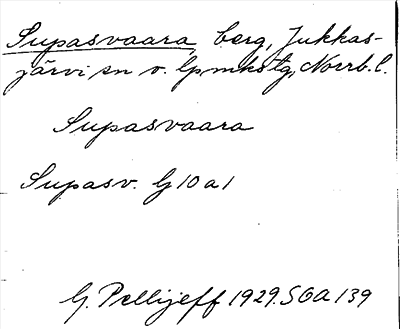 Supasvaara, berg, Jukkas-
järvi sn o. lpmkstg, Norrb. l.
Supasvaara
Supasv. G 10 a 1
G. Pellijeff 1929. SOA 139